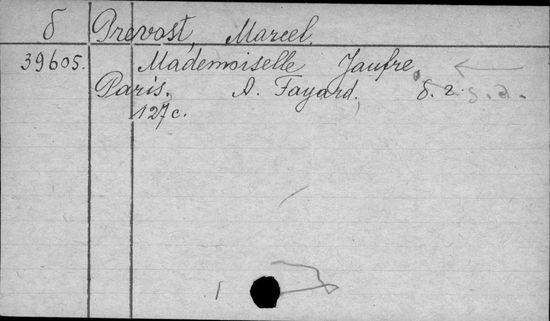 б Prevost, Marcel.
39605. Mademoiselle Jaufre.
Paris. A. Fayard. б. г. s. d.
127 c.